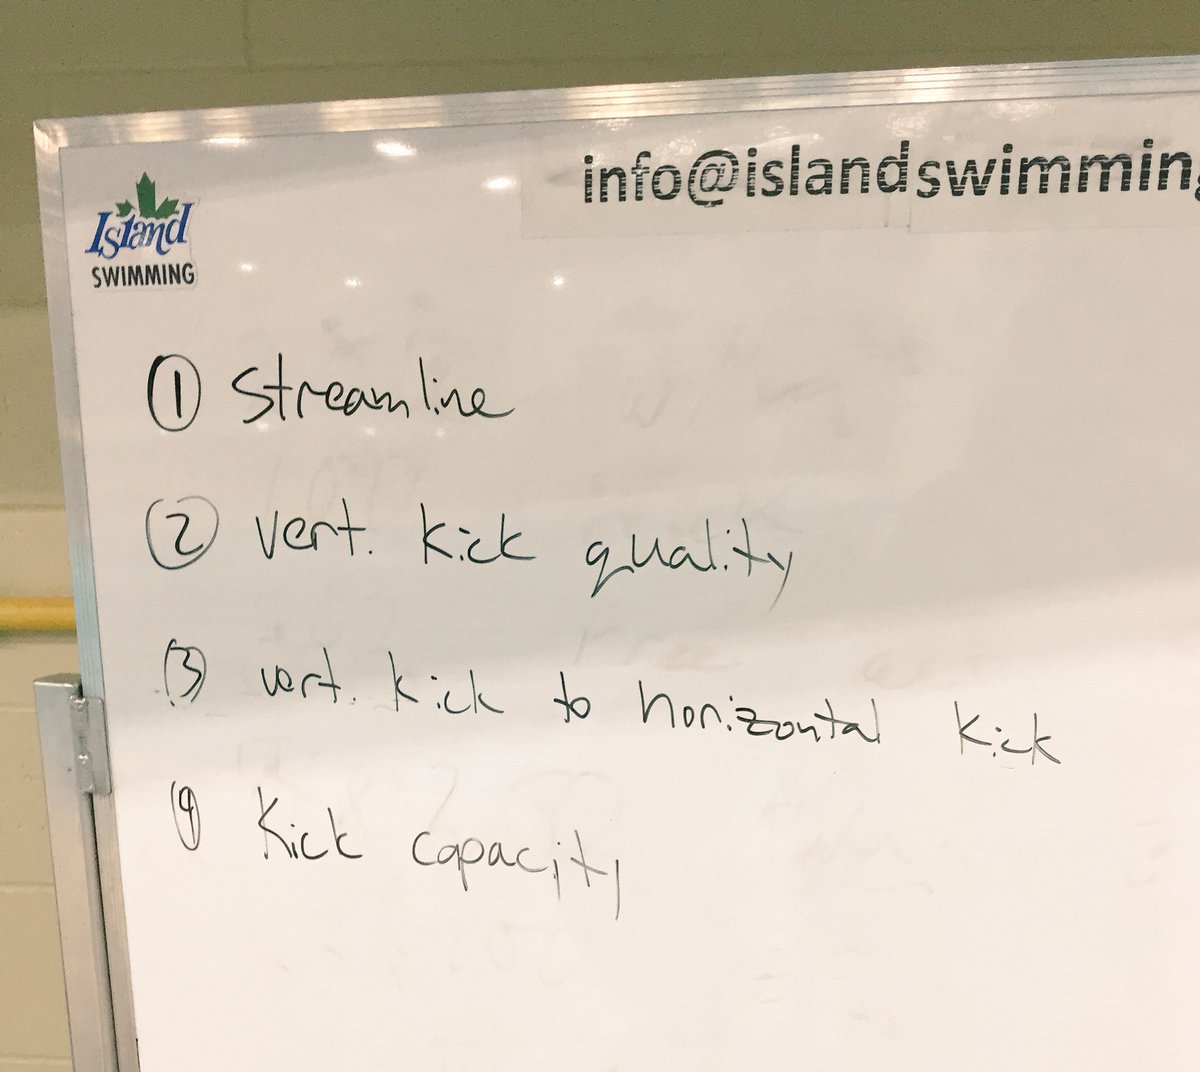 info@islandswimming
Island
SWIMMING
① Streamline
② vert. kick quality
③ vert. kick to horizontal kick
④ Kick capacity